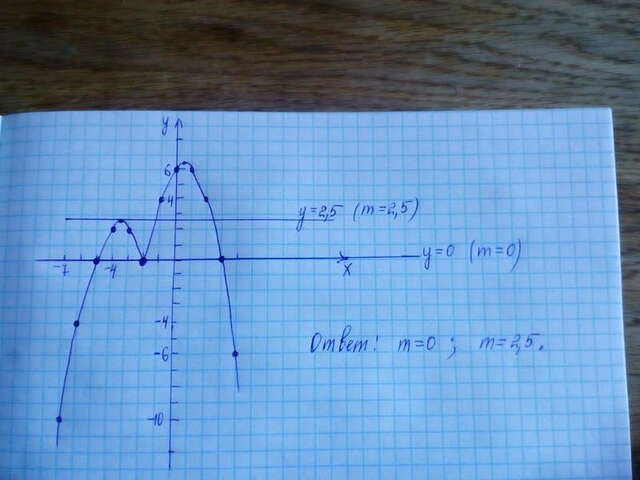 y
6
4
y=2,5 (m=2,5)
y=0 (m=0)
-7 -4 x
-4
-6
Ответ: m=0; m=2,5.
-10